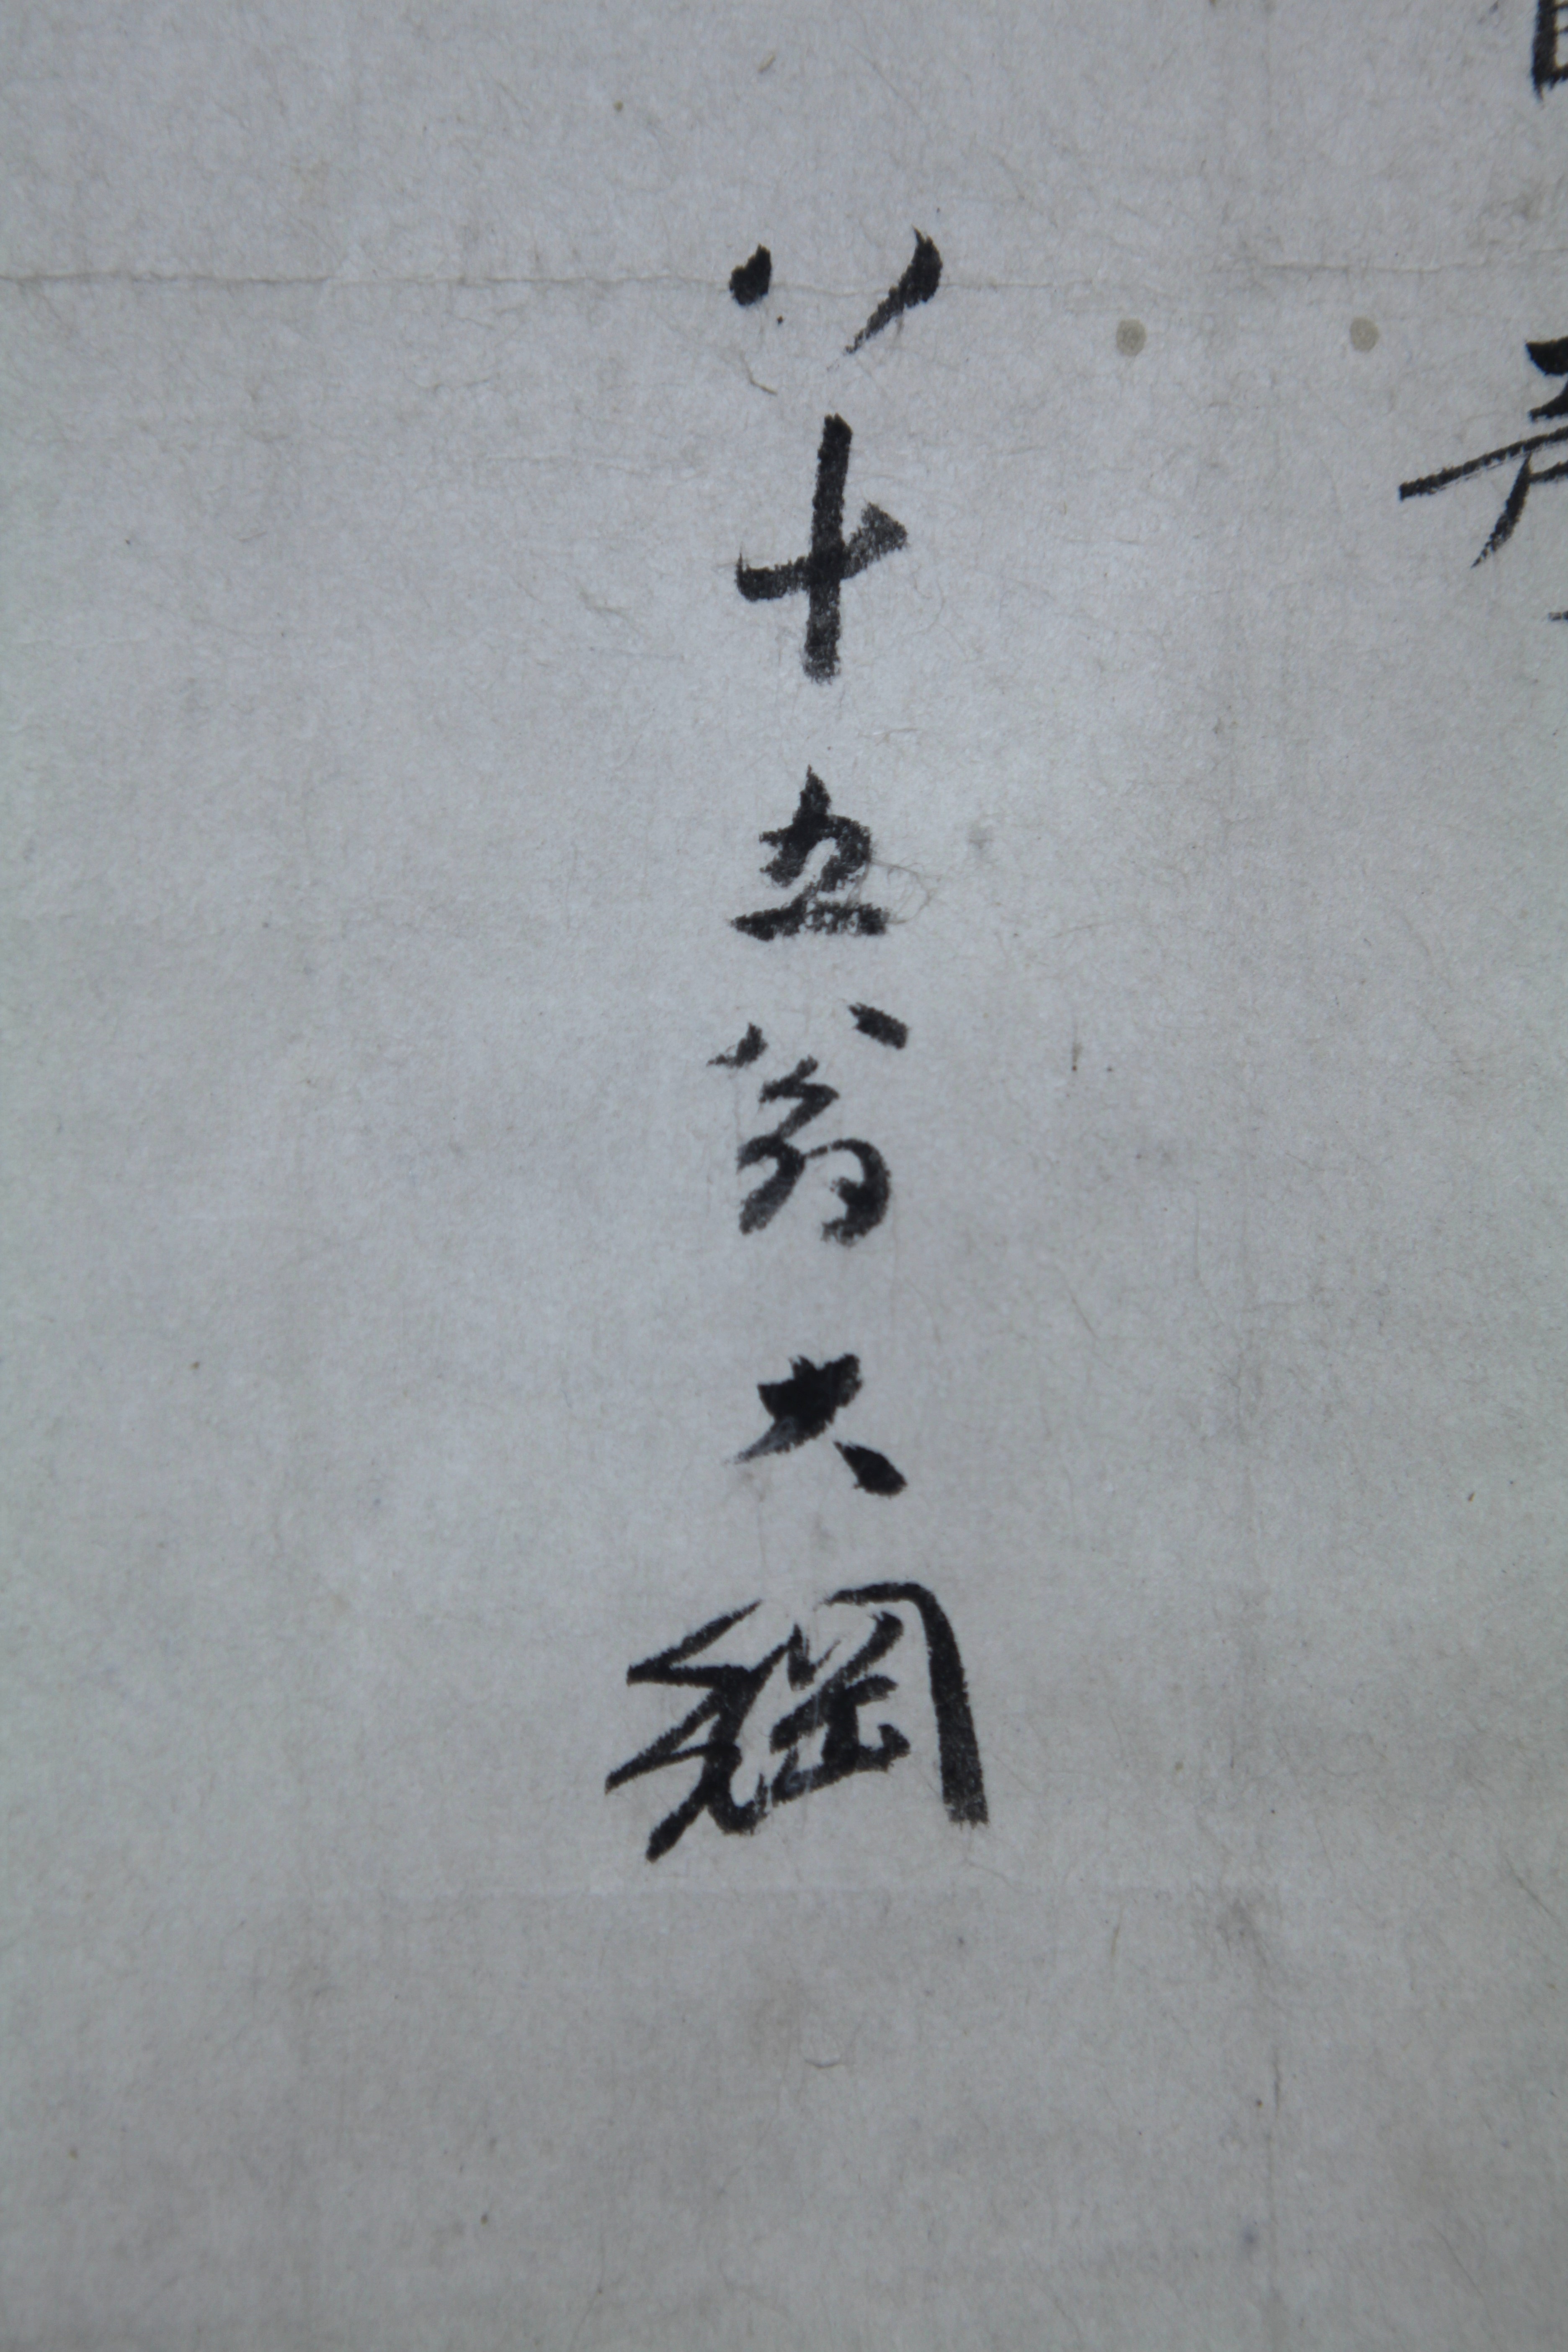 八十五翁大綱